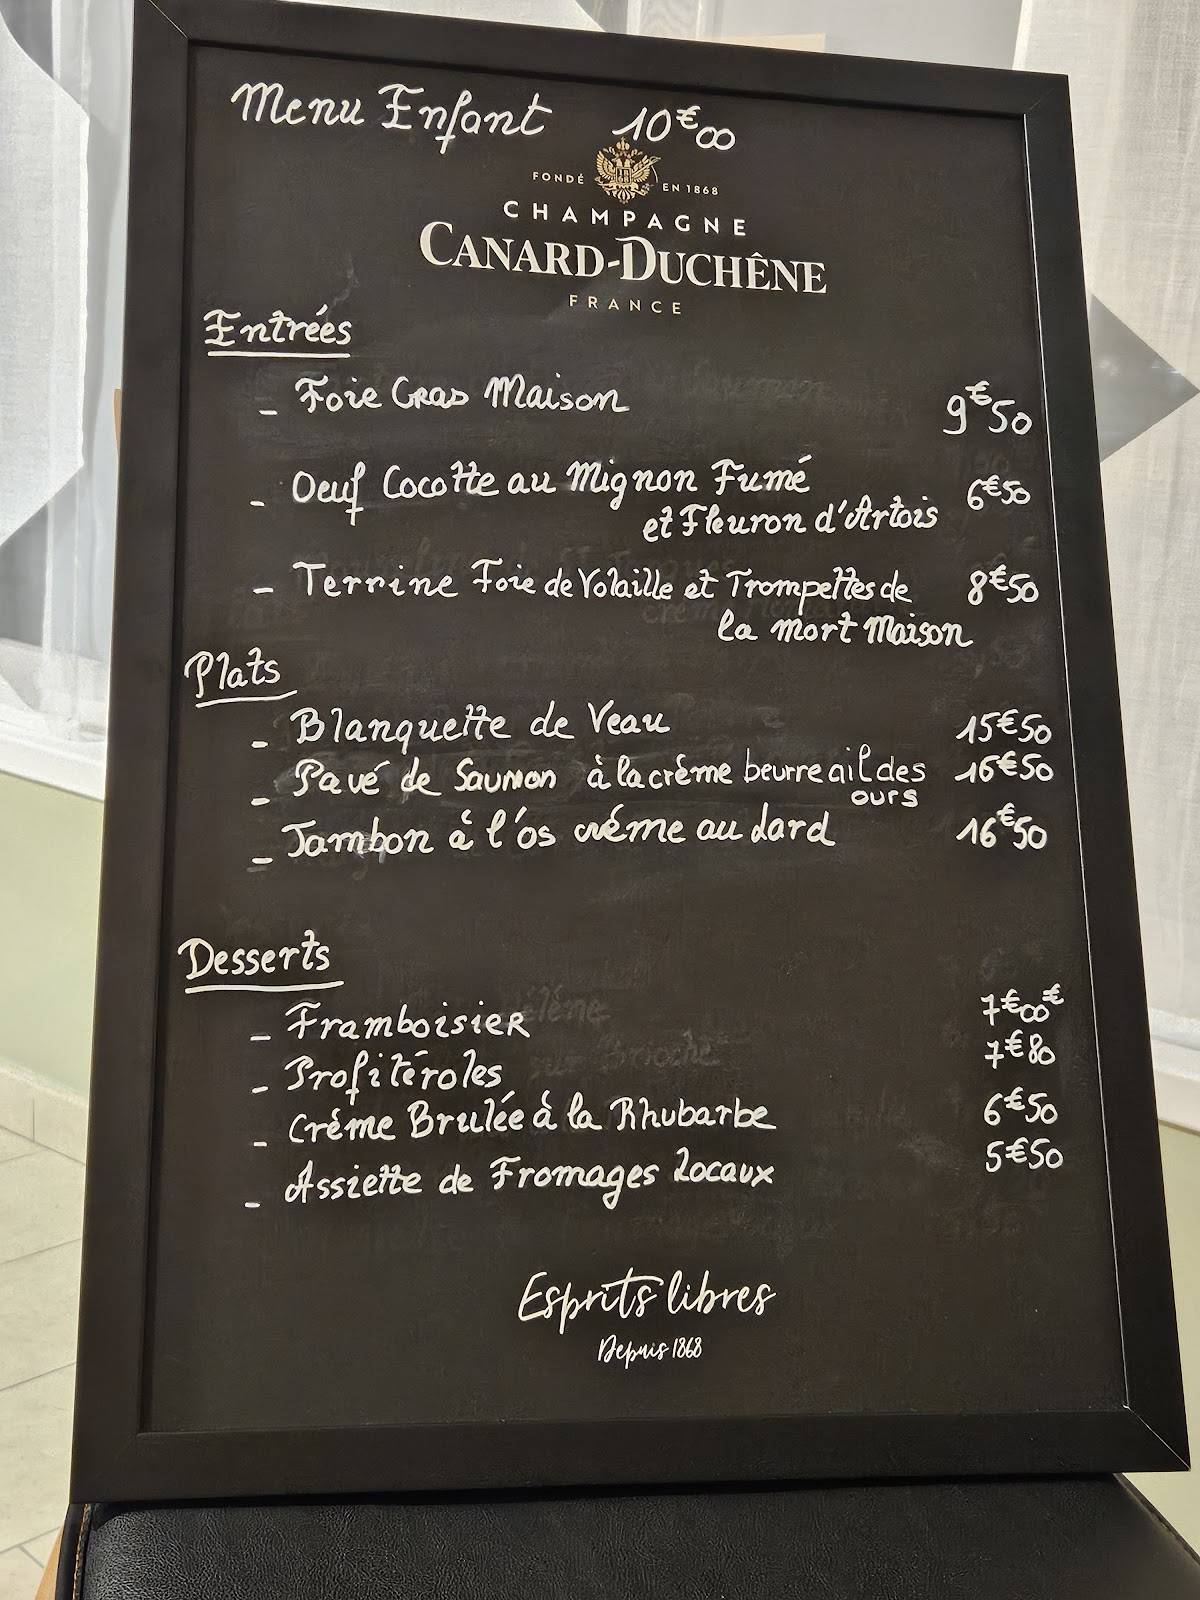 Menu Enfant 10€00
FONDÉ EN 1868
CHAMPAGNE
CANARD-DUCHÊNE
FRANCE
Entrées
- Foie Gras Maison 9€50
- Oeuf Cocotte au Mignon Fumé 6€50
et Fleuron d'Artois
- Terrine Foie de Volaille et Trompettes de 8€50
la mort Maison
Plats
- Blanquette de Veau 15€50
- Pavé de Saumon à la crème beurre ail des 16€50
ours
- Jambon à l'os crème au lard 16€50
Desserts
- Framboisier 7€00€
- Profitéroles 7€80
- Crème Brulée à la Rhubarbe 6€50
- Assiette de Fromages Locaux 5€50
Esprits libres
Depuis 1868